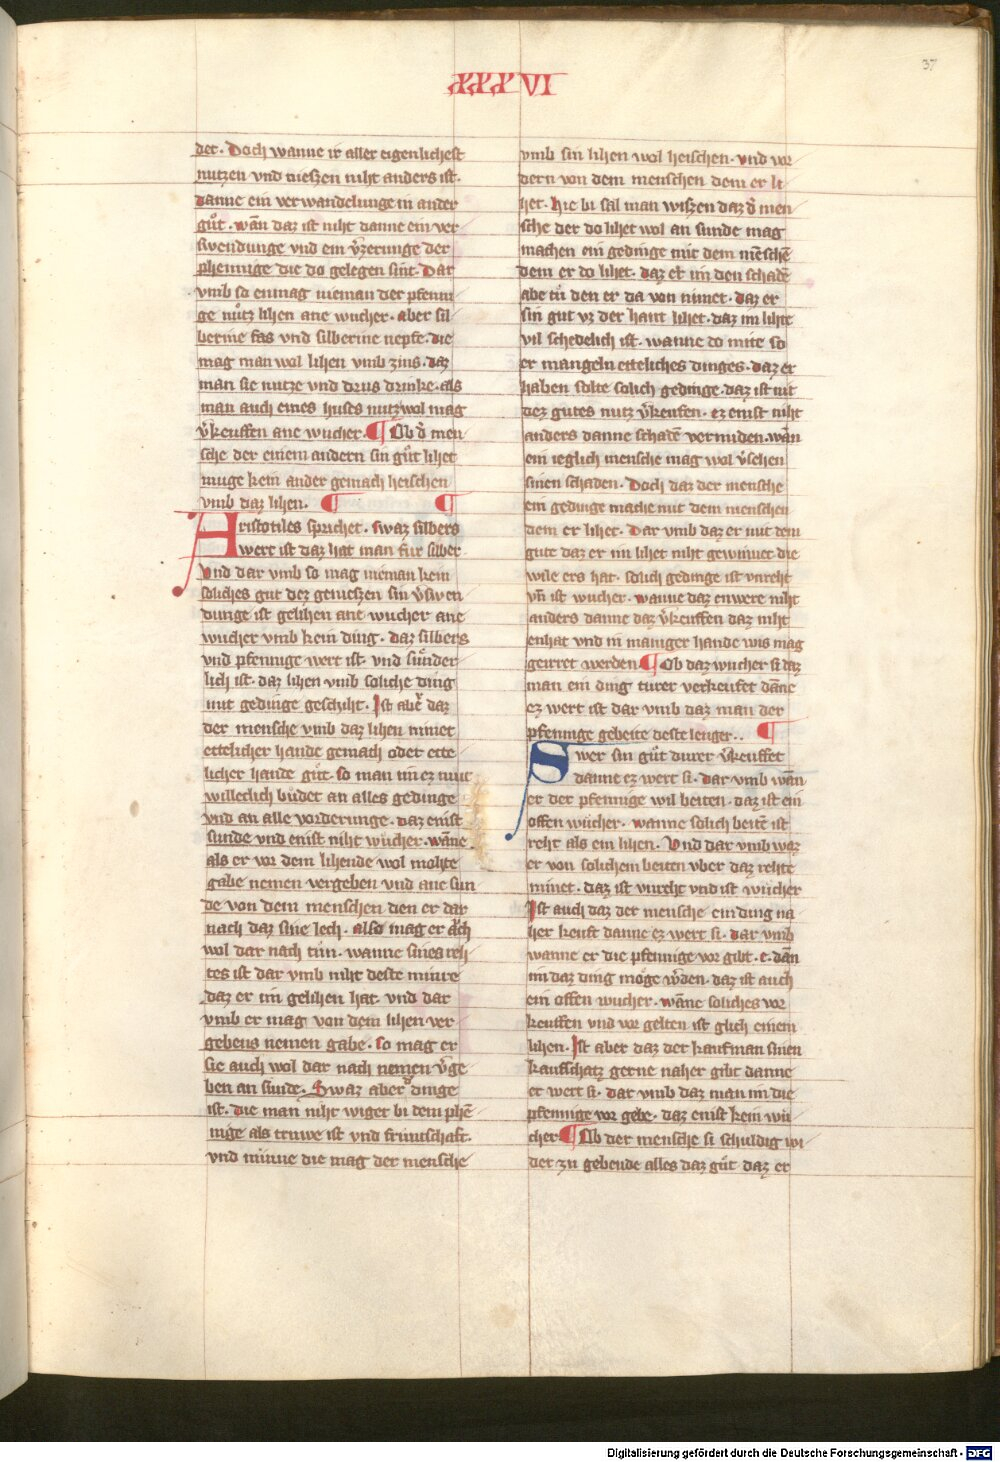 XXXVI
37
der. Doch wanne ir aller eigenlichest
nutzen vnd nieszen niht anders ist.
danne ein verwandelunge in ander
guͦt. wan̄ daz ist niht danne ein ver
swendunge vnd ein v̓zerunge der
phennige die do gelegen sint. Dar
vmb so enmag nieman der pfenni
ge nuͦtz lihen ane wucher. aber sil
berine fas vnd silberine nepfe. die
mag man wol lihen vmb zins. daz
man sie nutze vnd drus drinke. als
man auch eines huses nutz wol mag
v̓keuffen ane wucher. ¶ Ob d̓ men
sche der einem andern sin guͦt lihet
muge kein ander gemach heischen
vmb daz lihen. ¶ ¶
Aristotiles sprichet. swaz silbers
wert ist daz hat man fur silber.
vnd dar vmb so mag nieman kein
soliches gut dez genieszen sin v̓swen
dunge ist gelihen ane wucher ane
wucher vmb kein ding. daz silbers
vnd pfennige wert ist. vnd suͦnder
lich ist. daz lihen vmb soliche ding
mit gedinge geschiht. Ist aber daz
der mensche vmb daz lihen nimet
ettelicher hande gemach oder ette
licher hande guͦt. so man im ez mut
willeclich buͦdet an alles gedinge
vnd an alle vorderunge. daz enist
sunde vnd enist niht wucher. wan̄e
als er vor dem lihende wol mohte
gabe nemen vergeben vnd ane sun
de von dem menschen den er dar
nach daz sine lech. also mag er auch
wol dar nach tun. wanne sines reh
tes ist dar vmb niht deste minre
daz er im gelihen hat. vnd dar
vmb er mag von dem lihen ver
gebens nemen gabe. so mag er
sie auch wol dar nach nemen v̓ge
ben an sunde. Swaz aber dinge
ist. die man niht wiget bi dem phē
nige als truwe ist vnd fruntschaft.
vnd minne die mag der mensche
vmb sin lihen wol heischen. vnd vor
dern von dem menschen dem er li
het. Hie bi sal man wiszen daz d̓ men
sche der do lihet wol an sunde mag
machen ein gedinge mit dem mēschē
dem er do lihet. daz er im den schadē
abe tuͦ den er da von nimet. daz er
sin gut vz der hant lihet. daz im lihte
vil schedelich ist. wanne do mite so
er mangeln etteliches dinges. daz er
haben solte solich gedinge. daz ist nit
dez gutes nutz v̓keufen. ez enist niht
anders danne schadē vermiden. wan̄
ein ieglich mensche mag wol v̓sehen
sinen schaden. Doch daz der mensche
ein gedinge mache mit dem menschen
dem er lihet. Dar vmb daz er mit dem
gute daz er im lihet niht gewinnet die
wile ers hat. solich gedinge ist vnreht
vn̄ ist wucher. wanne daz enwere niht
anders danne daz v̓keuffen daz niht
enhat vnd in maniger hande wis mag
geirret werden ¶ Ob daz wucher si daz
man ein ding turer verkeufet dan̄e
ez wert ist dar vmb daz man der
pfennige gebeite deste lenger.. ¶
Swer sin guͦt durer v̓keuffet
danne ez wert si. dar vmb wan̄
er der pfennige wil beiten. daz ist ein
offen wucher. wanne solich beitē ist
reht als ein lihen. Vnd dar vmb waz
er von solichem beiten vber daz rehte
nimet. daz ist vnreht vnd ist wucher
Ist auch daz der mensche ein ding na
her keuft danne ez wert si. dar vmb
wanne er die pfennige vor gibt. e. dan̄
im daz ding moͤge w̓den. daz ist auch
ein offen wucher. wan̄e soliches vor
keuffen vnd vor gelten ist glich einem
lihen. Ist aber daz der kaufman sinen
kaufschatz gerne naher gibt danne
er wert si. dar vmb daz man im die
pfennige vor gebe. daz enist kein wu
cher ¶ Ob der mensche si schuldig wi
der zu gebende alles daz guͦt daz er
Digitalisierung gefördert durch die Deutsche Forschungsgemeinschaft - DFG